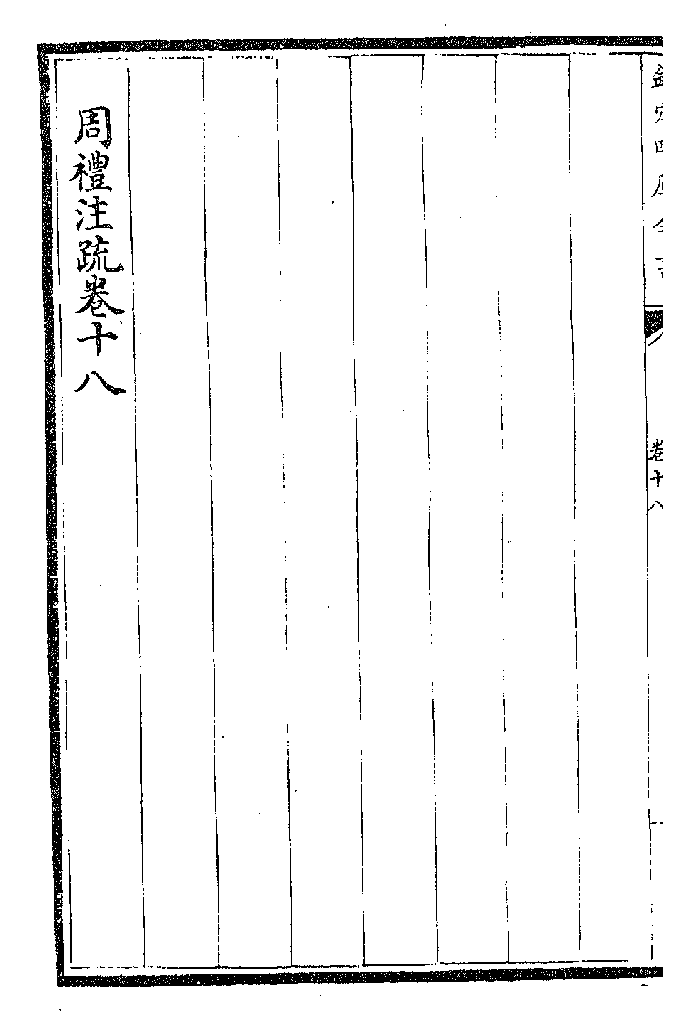 欽定四庫全書
卷十八
周禮注疏卷十八